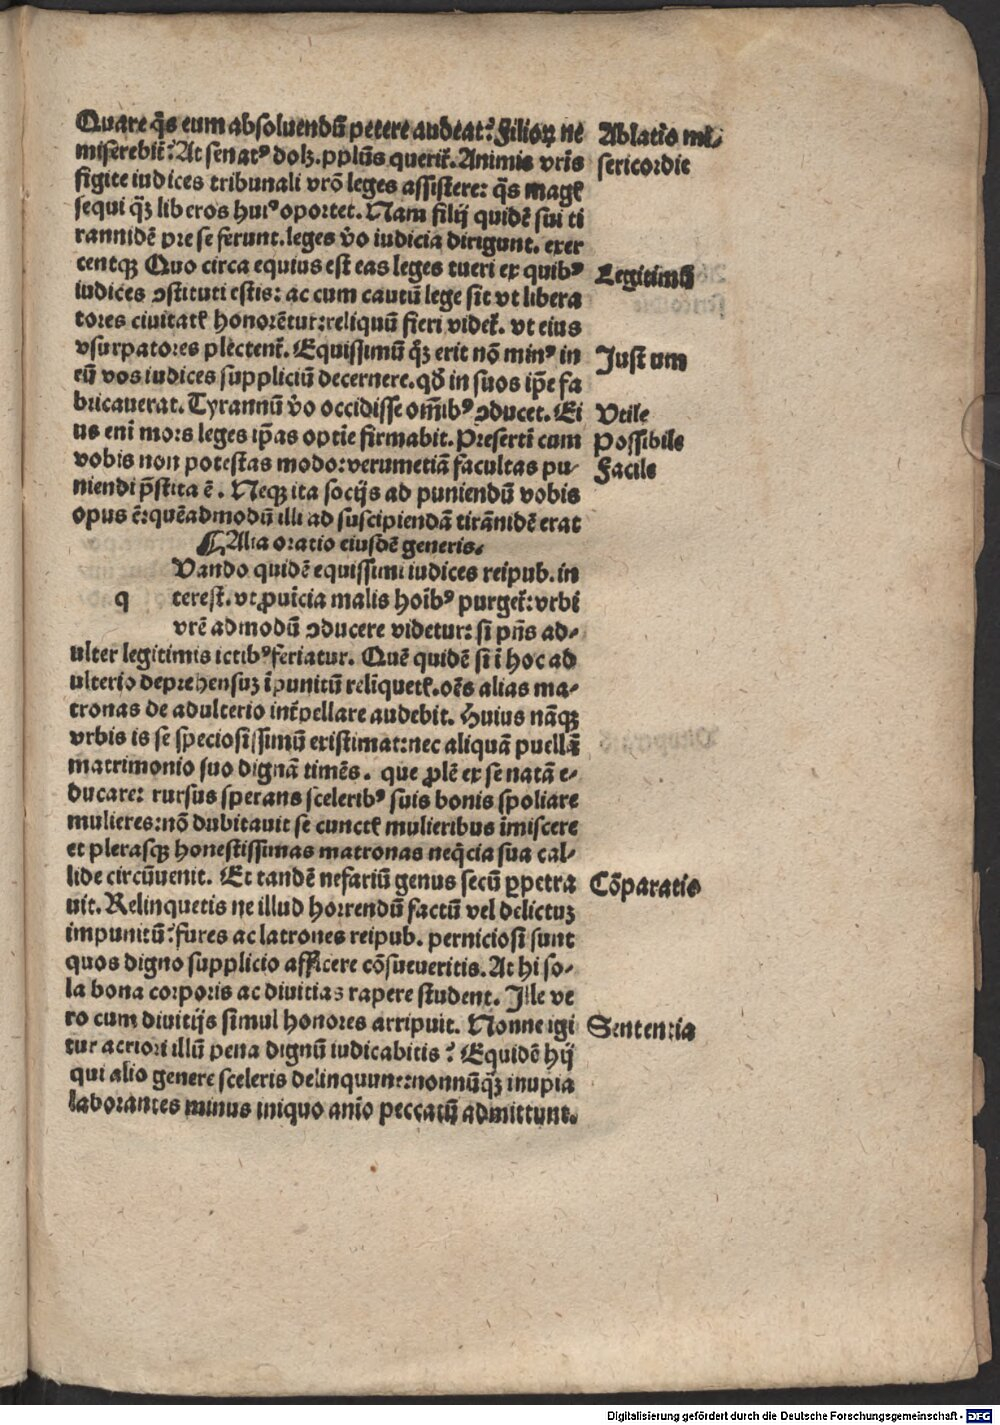 Quare q̃s eum absoluendũ petere audeat? Filioꝝ ne
miserebit̃? At senatꝰ dolꝫ. pplũs querit̃. Animis vrĩs
figite iudices tribunali vrõ leges assistere: q̃s magꝭ
sequi q̃ꝫ liberos huiꝰ oportet. Nam filij quidẽ sui ti
rannidẽ pre se ferunt. leges ṽo iudicia dirigunt. exer
centqꝫ Quo circa equius est eas leges tueri ex quibꝰ
iudices ↄstituti estis: ac cum cautũ lege sit vt libera
tores ciuitatꝭ honorẽtur: reliquũ fieri videt̃. vt eius
vsurpatores plectent̃. Equissimũ q̃ꝫ erit nõ minꝰ in
eũ vos iudices suppliciũ decernere. qđ in suos ip̃e fa
bricauerat. Tyrannũ ṽo occidisse om̃ibꝰ ↄducet. Ei
us eni mors leges ip̃as optĩe firmabit. Preserti cum
vobis non potestas modo: verumetiã facultas pu-
niendi p̃stita ẽ. Neqꝫ ita socijs ad puniendũ vobis
opus ẽ: quẽadmodũ illi ad suscipiendã tirãnidẽ erat
Alia oratio eiusdẽ generis.
Vando quidẽ equissimi iudices reipub. in
q terest. vt ꝓuĩcia malis hoĩbꝰ purget̃: vrbi
vrẽ admodũ ↄducere videtur: si pñs ad-
ulter legitimis ictibꝰ feriatur. Quẽ quidẽ si ĩ hoc ad
ulterio deprehensuꝫ ĩpunitũ relĩquetꝭ. oẽs alias ma-
tronas de adulterio int̃pellare audebit. Huius nãqꝫ
vrbis is se speciosissimũ existimat: nec aliquã puellã
matrimonio suo dignã timẽs. que ꝓlẽ ex se natã e-
ducare: rursus sperans sceleribꝰ suis bonis spoliare
mulieres: nõ dubitauit se cunctꝭ mulieribus ĩmiscere
et plerasqꝫ honestissimas matronas neq̃cia sua cal-
lide circũuenit. Et tandẽ nefariũ genus secũ ꝑpetra
uit. Relinquetis ne illud horrendũ factũ vel delictuꝫ
impunitũ? fures ac latrones reipub. perniciosi sunt
quos digno supplicio afficere cõsueueritis. At hi so-
la bona corporis ac diuitias rapere student. Ille ve
ro cum diuitijs simul honores arripuit. Nonne igi
tur acriori illũ pena dignũ iudicabitis? Equidẽ hij
qui alio genere sceleris delinquunt: nonnũq̃ꝫ inopia
laborantes minus iniquo anĩo peccatũ admittunt.
Ablatio mi-
sericordie
Legitimũ
Justum
Vtile
Possibile
Facile
Cõparatio
Sententia
Digitalisierung gefördert durch die Deutsche Forschungsgemeinschaft - DFG